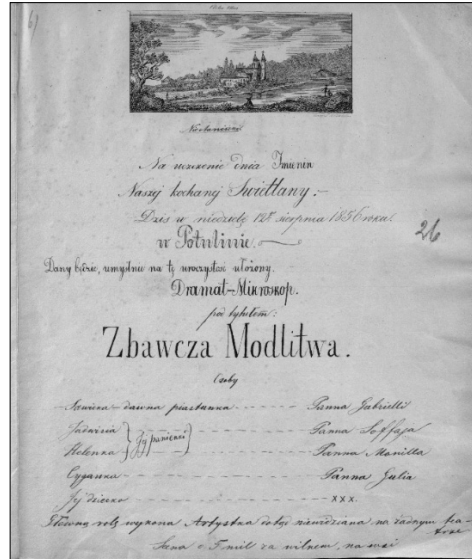 Na uczczenie dnia Imienin
Naszej kochanej Swietłany.
Dziś w niedzielę 12go sierpnia 1856 roku.
w Potulinie.
26
Dany będzie, umyślnie na tę uroczystość ułożony.
Dramat-Mikroskop.
pod tytułem:
Zbawcza Modlitwa.
Osoby
dawna piastunka Panna Gabrielli
Jadwisia Panna Soffaja
Helenka Jej panienki Panna Manilla
Cyganka Panna Julia
Jej dziecko xxx.
Główną rolę wykona Artystka dotąd niewidziana na żadnym teatrze
Scena o 5 mil za wilnem, na wsi